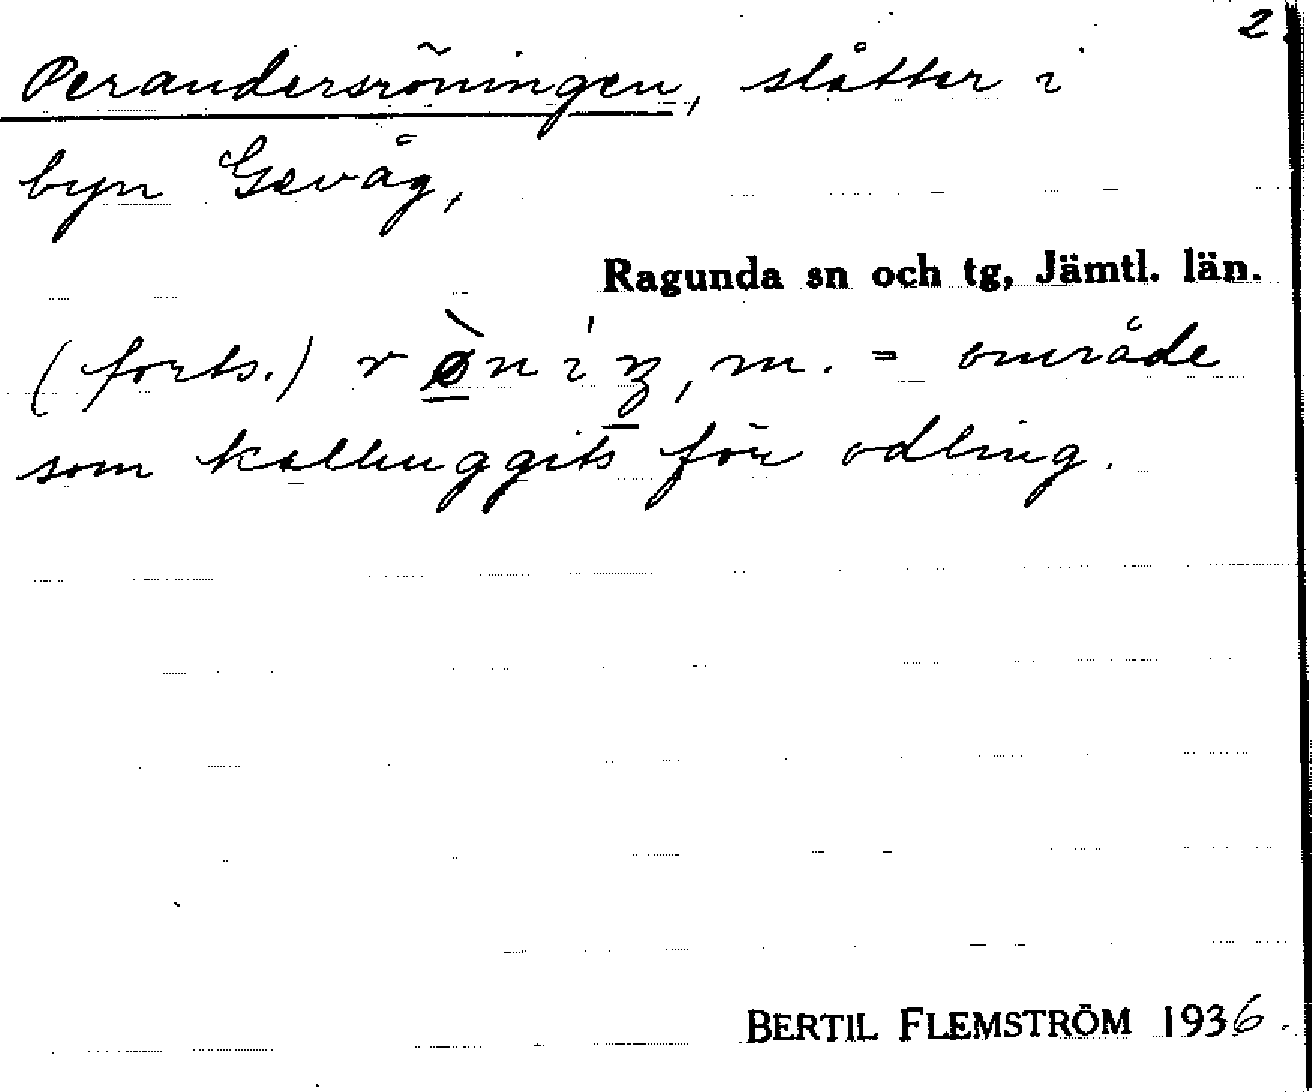 2.
Perandersröningen, slåtter i
byn Gevåg,
Ragunda sn och tg, Jämtl. län.
(forts.) rø̀niŋ, m. = område
som kalhuggits för odling.
BERTIL FLEMSTRÖM 1936.